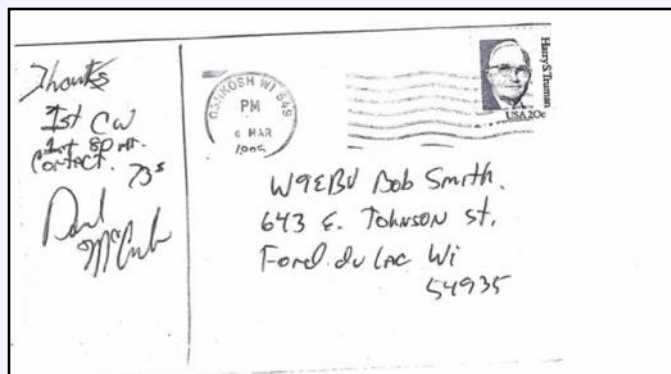 Thanks
1st CW
1st 80 mt.
Contact.
73s
OSHKOSH WI 549
PM
6 MAR
Harry S. Truman
USA 20c
W9EBV Bob Smith.
643 E. Johnson st.
Fond.du Lac Wi
54935